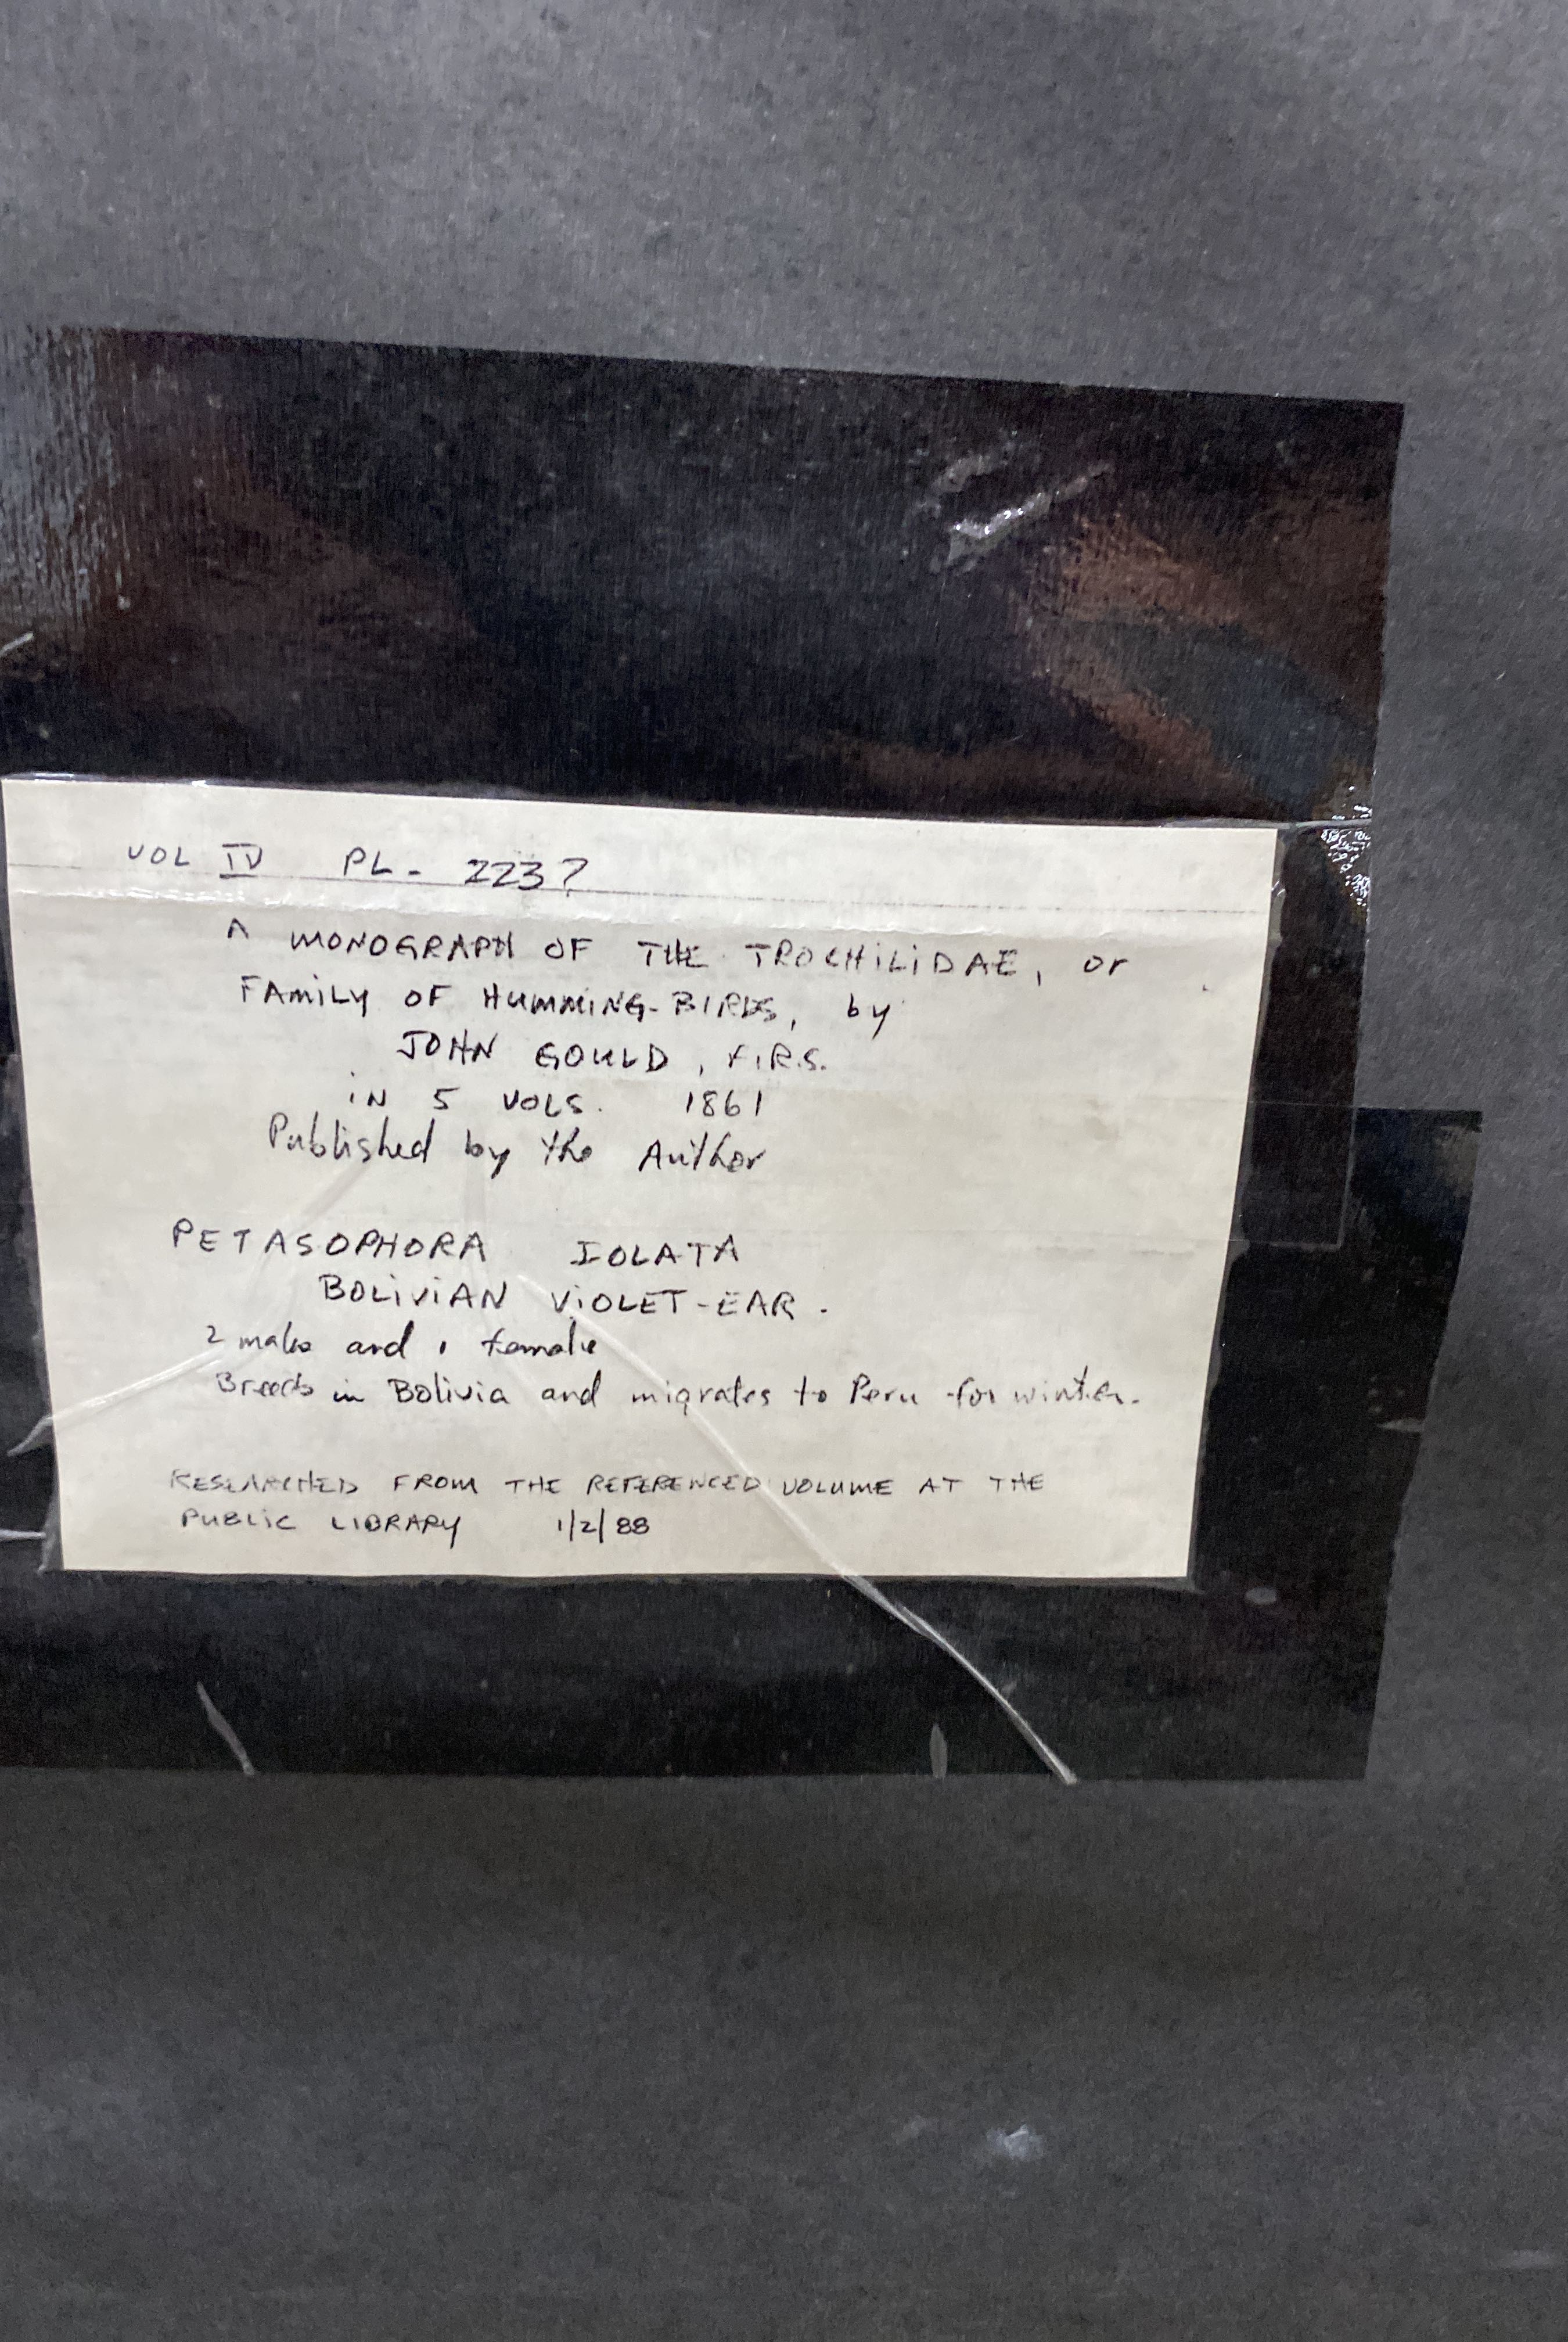 VOL IV PL. 223?
A MONOGRAPH OF THE TROCHILIDAE, or
FAMILY OF HUMMING-BIRDS, by
JOHN GOULD, F.R.S.
iN 5 VOLS. 1861
Published by the Author
PETASOPHORA IOLATA
BOLIVIAN VIOLET-EAR.
2 males and 1 female
Breeds in Bolivia and migrates to Peru for winter.
RESEARCHED FROM THE REFERENCED VOLUME AT THE
PUBLIC LIBRARY 1/2/88